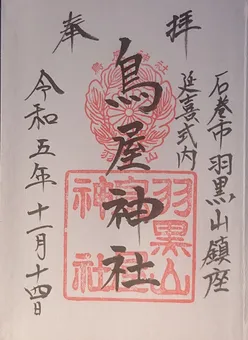 奉拝
石巻市羽黒山鎮座
延喜式内
鳥屋神社
羽黒山
神社
令和五年十一月十四日